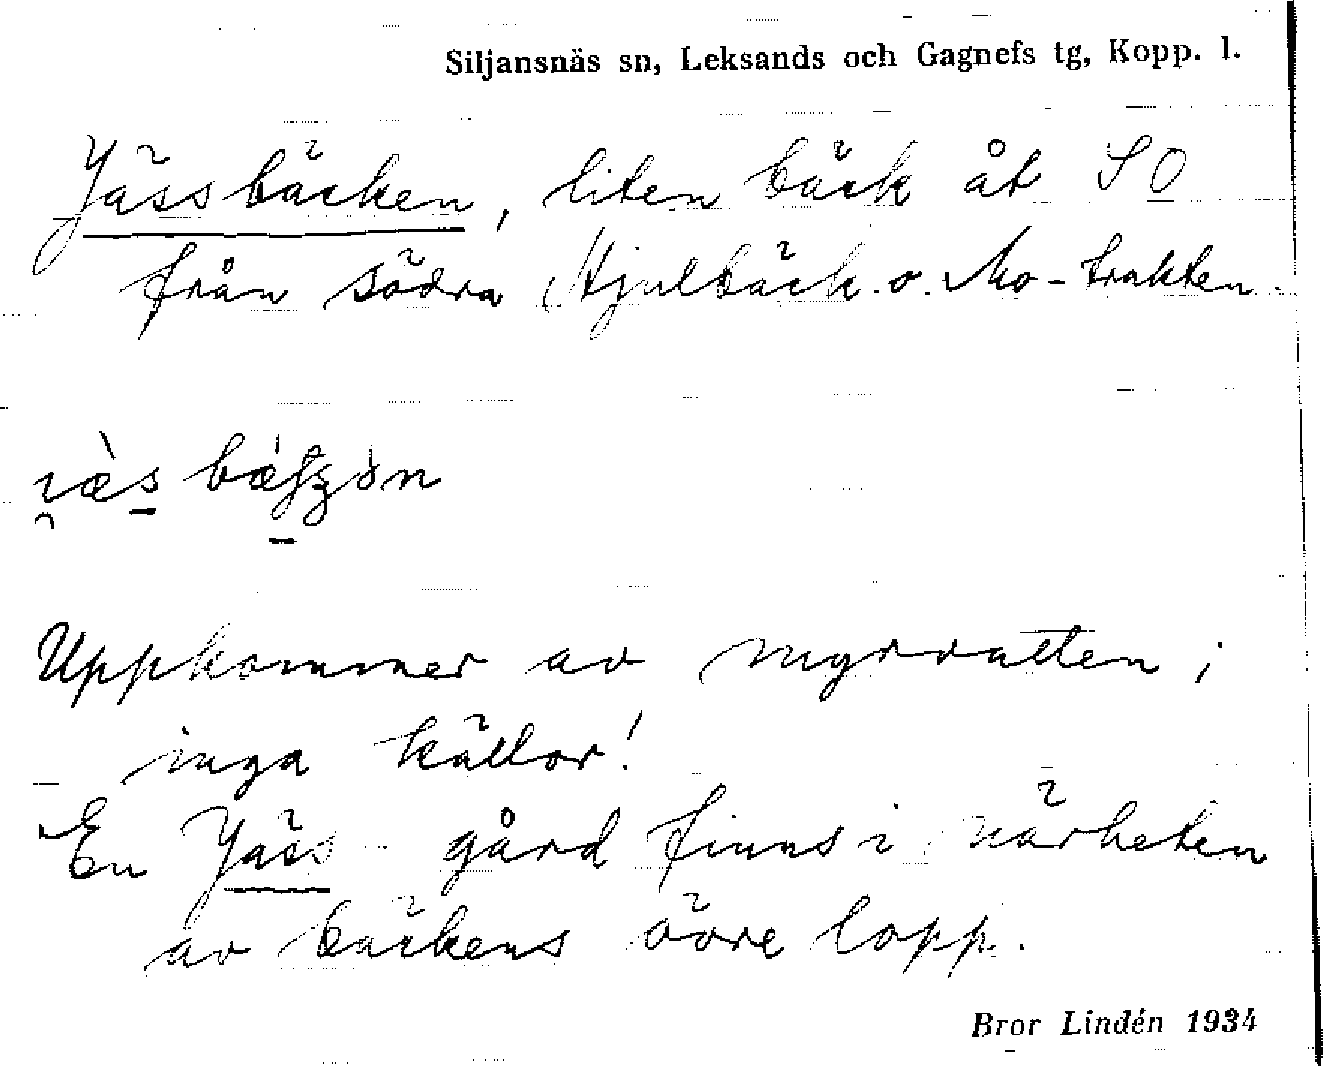 Siljansnäs sn, Leksands och Gagnefs tg, Kopp. l.
Jässbäcken, liten bäck åt SO
från södra Hjulbäck. o. Mo-trakten.
Uppkommer av myrvatten ;
inga källor!
En Jäss-gård finns i närheten
av bäckens övre lopp.
Bror Lindén 1934